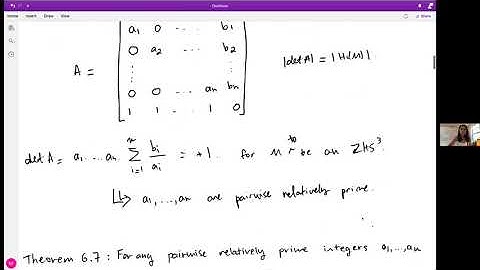 Home Insert Draw View
a₁ 0 ... b₁
0 a₂ ... b₂
A = ⋮ ⋮ |det A| = |H₁(M)|
0 0 ... aₙ bₙ
1 1 ... 1 0
det A = a₁ ... aₙ Σⁿᵢ₌₁ bᵢ/aᵢ = +1 for M to be an ZHS³.
↳ a₁, ..., aₙ are pairwise relatively prime.
Theorem 6.7 : For any pairwise relatively prime integers a₁, ..., aₙ